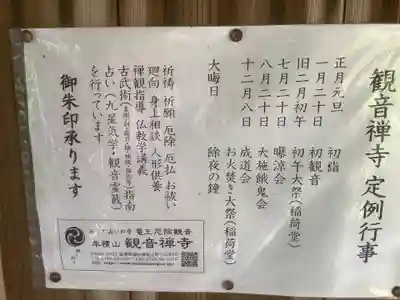 観音禅寺 定例行事
正月元旦 初詣
一月二十日 初観音
旧二月初午 初午大祭(稲荷堂)
七月二十日 曝涼会
八月二十日 大施餓鬼会
十二月八日 成道会
お火焚き大祭(稲荷堂)
大晦日 除夜の鐘
祈祷 祈願 厄除 厄払 お祓い
廻向 身上相談 人形供養
禅観指導 仏教学講義
古武術 指南
占い(九星気学・観音霊籤)
を行っています
御朱印承ります
竜王厄除観音
観音禅寺